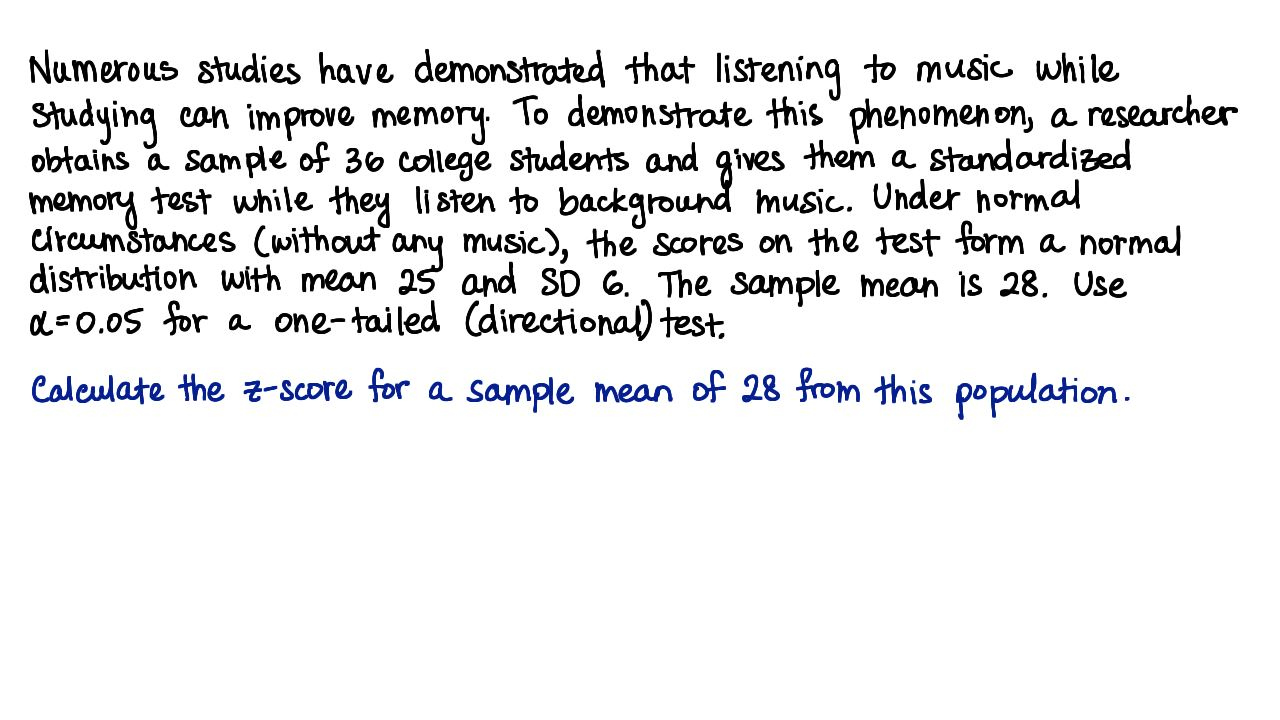 Numerous studies have demonstrated that listening to music while
studying can improve memory. To demonstrate this phenomenon, a researcher
obtains a sample of 36 college students and gives them a standardized
memory test while they listen to background music. Under normal
circumstances (without any music), the scores on the test form a normal
distribution with mean 25 and SD 6. The sample mean is 28. Use
α=0.05 for a one-tailed (directional) test.
Calculate the z-score for a sample mean of 28 from this population.